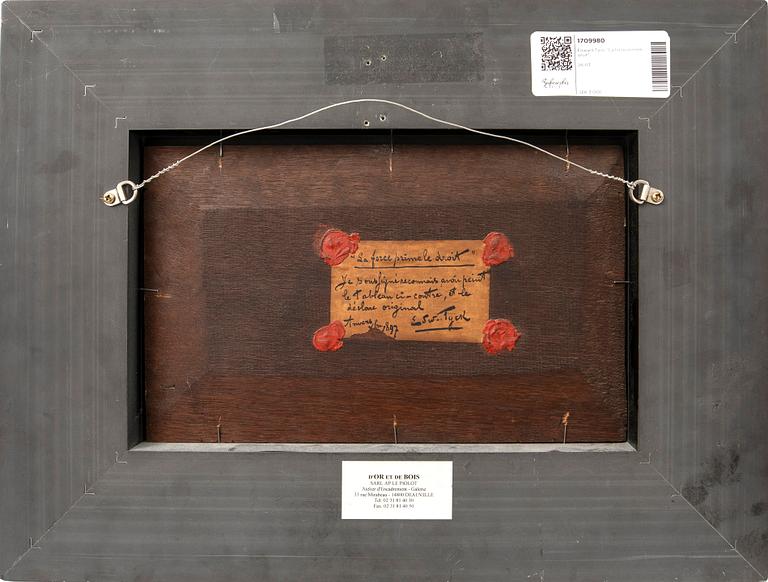 1709980
"La force prime le droit"
Je soussigné reconnais avoir peint
le tableau ci-contre, et le
déclare original
Anvers 1897 Edw. Tyck
D'OR ET DE BOIS
SARL AP LE PIOLOT
Atelier d'Encadrement - Galerie
33 rue Mirabeau - 14800 DEAUVILLE
Tél. 02 31 81 40 30
Fax. 02 31 81 40 50